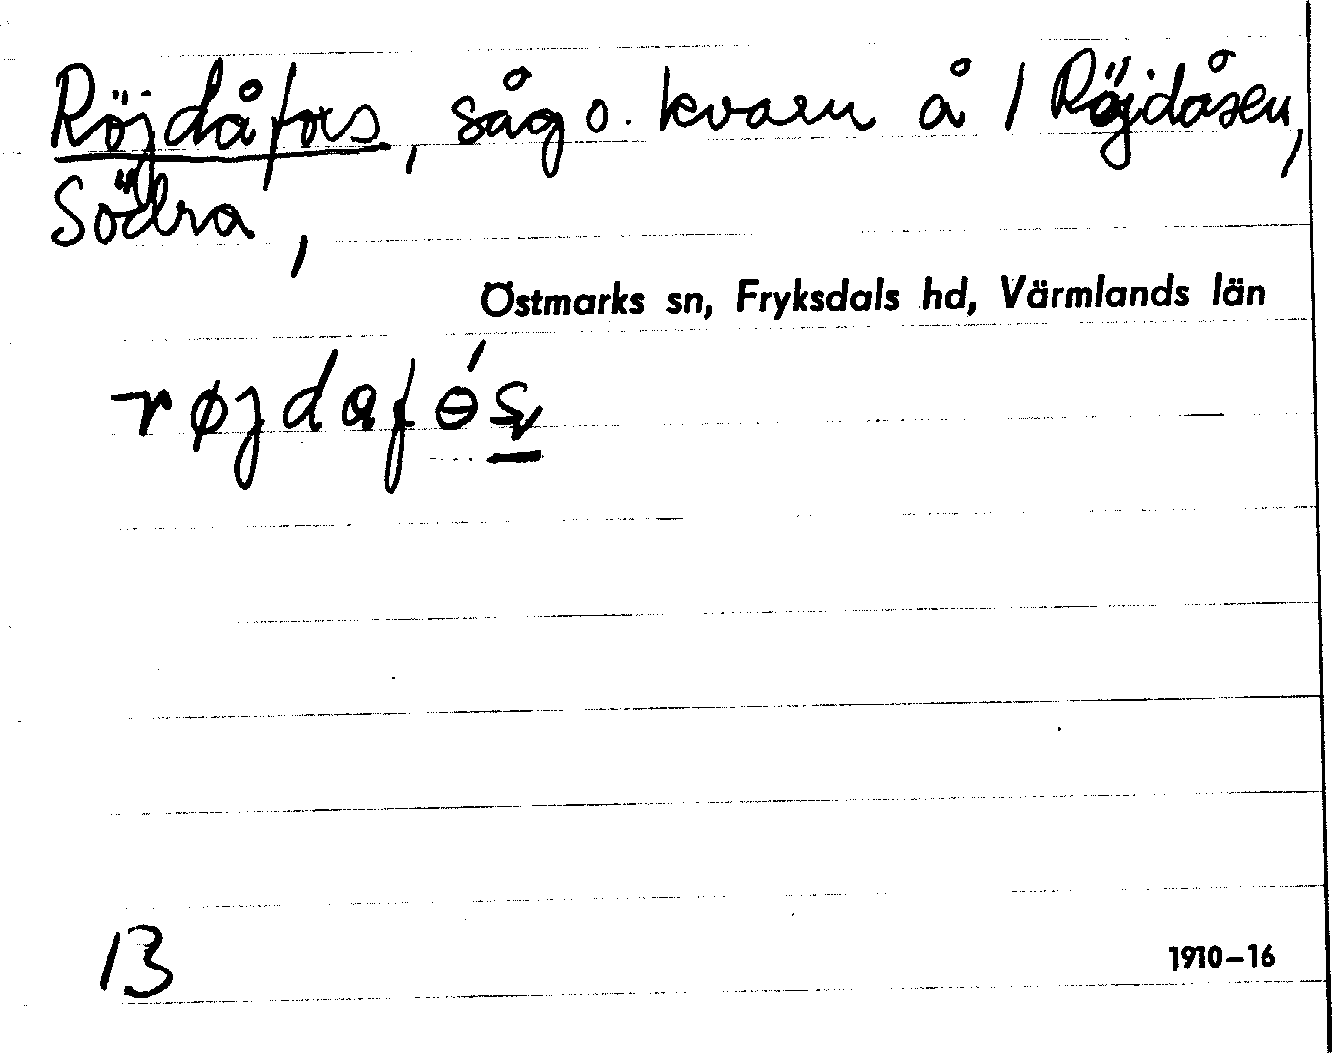 Röjdåfors, såg o. kvarn å / Röjdåsen,
Södra,
Östmarks sn, Fryksdals hd, Värmlands län
røjdafɵ́s
13
1910–16